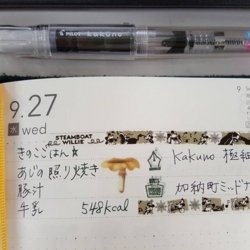 PILOT kakuno
9.27
水 wed
STEAMBOAT WILLIE
きのこごはん☆
あじの照り焼き
豚汁
牛乳 548kcal
Kakuno 極細
加納町ミッドナ